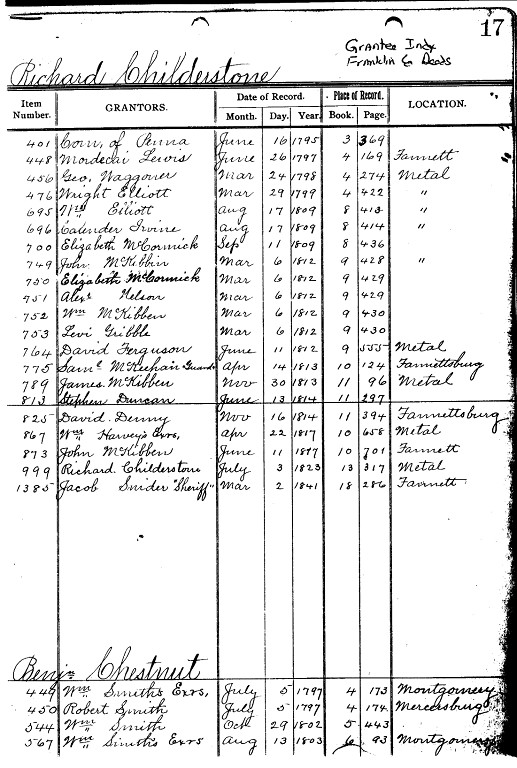 17
Grantee Indx
Franklin Co Deeds
Richard Childerstone
Item Number. GRANTORS. Date of Record. Month. Day. Year. Place of Record. Book. Page. LOCATION.
401 Com. of Penna June 16 1795 3 369
448 Mordecai Lewis June 26 1797 4 169 Fannett
456 Geo. Waggoner Mar 24 1798 4 274 Metal
476 Wright Elliott Mar 29 1799 4 422 "
695 Wm Elliott Aug 17 1809 8 413 "
696 Calender Irvine Aug 17 1809 8 414 "
700 Elizabeth McCormick Sep 11 1809 8 436
749 John McKibbin Mar 6 1812 9 428 "
750 Elizabeth McCormick Mar 6 1812 9 429
751 Alexr Nelson Mar 6 1812 9 429
752 Wm McKibben Mar 6 1812 9 430
753 Levi Gribble Mar 6 1812 9 430
764 David Ferguson June 11 1812 9 555 Metal
775 Saml McKeehan Guard Apr 14 1813 10 124 Fannettsburg
789 James McKibben Nov 30 1813 11 96 Metal
813 Stephen Duncan June 13 1814 11 297
825 David Denny Nov 16 1814 11 394 Fannettsburg
867 Wm Harvey's Exrs, Apr 22 1817 10 658 Metal
873 John McKibben June 11 1817 10 701 Fannett
999 Richard Childerstone July 3 1823 13 317 Metal
1385 Jacob Snider "Sheriff" Mar 2 1841 18 286 Fannett
Benjn Chestnut
449 Wm Smith's Exrs, July 5 1797 4 173 Montgomery
450 Robert Smith July 5 1797 4 174 Mercersburg
544 Wm Smith Oct 29 1802 5 443
567 Wm Smith's Exrs Aug 13 1803 6 93 Montgomery